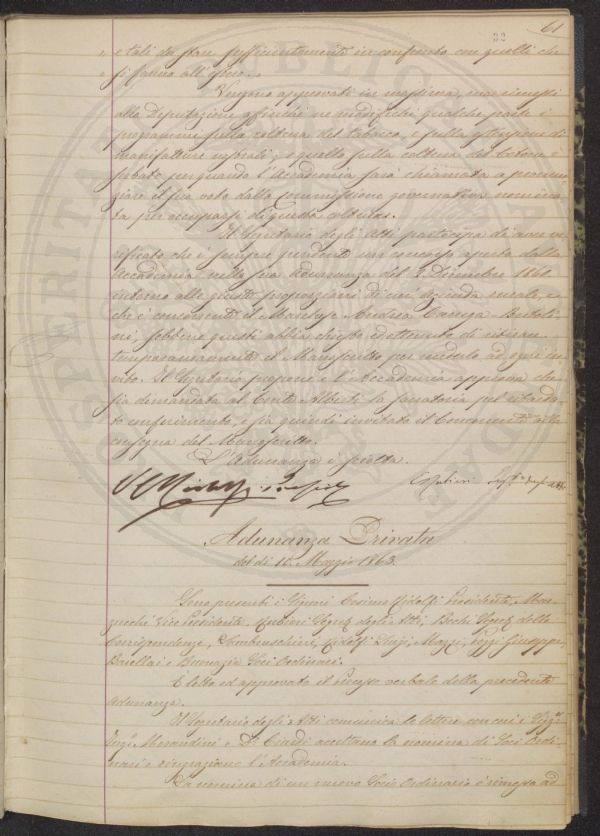 61
32
„ e tali da stare sufficientemente in confronto con quelli che
„ si fanno all'estero.„
Vengono approvati in massima, ma rinviati
alla Deputazione affinchè ne modifichi qualche parte i
programmi sulla coltura del tabacco, e sulla istituzione di
manifatture rurali; e quello sulla coltura del Cotone è
serbato per quando l'Accademia sarà chiamata a pronun-
ziare il suo voto dalla Commissione governativa nomina-
ta per occuparsi di questa coltura.
Il Segretario degli Atti partecipa di aver ve-
rificato che è sempre pendente un concorso aperto dalla
Accademia nella sua Adunanza del 2 Dicembre 1860
intorno alle giuste proporzioni di una Azienda rurale, e
che è concorrente il Marchese Andrea Carega Bertoli-
ni, sebbene questi abbia chiesto ed ottenuto di ritirare
temporaneamente il Manoscritto per renderlo ad ogni in-
vito. Il Segretario propone e l'Accademia approva che
sia domandata al Conte Alberti la sanatoria pel ritarda-
to conferimento, e sia quindi invitato il Concorrente alla
consegna del Manoscritto.
L'Adunanza è sciolta.
C Ridolfi Presid
E Rubieri Seg.º degli Atti
Adunanza Privata
del dì 10. Maggio 1863.
Sono presenti i Signori Cosimo Ridolfi Presidente, Mar-
zucchi Vice Presidente, Rubieri Segret.º degli Atti, Bechi Segret.º delle
Corrispondenze, Lambruschini, Ridolfi Luigi, Mazzi, Pozzi Giuseppe,
Briellai e Buonazia Soci Ordinari.
È letto ed approvato il Processo verbale della precedente
Adunanza.
Il Segretario degli Atti comunica le lettere con cui i Sigg.ri
Ing.e Morandini e D.r Ciardi accettano la nomina di Soci Ordi-
nari e ringraziano l'Accademia.
La nomina di un nuovo Socio Ordinario è rimessa ad